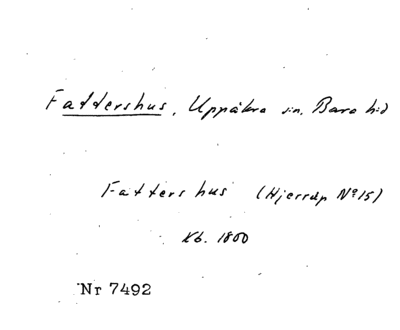 Fattershus, Uppåkra sn, Bara hd
Fatters hus (Hjerrup No 15)
Kb. 1800
Nr 7492